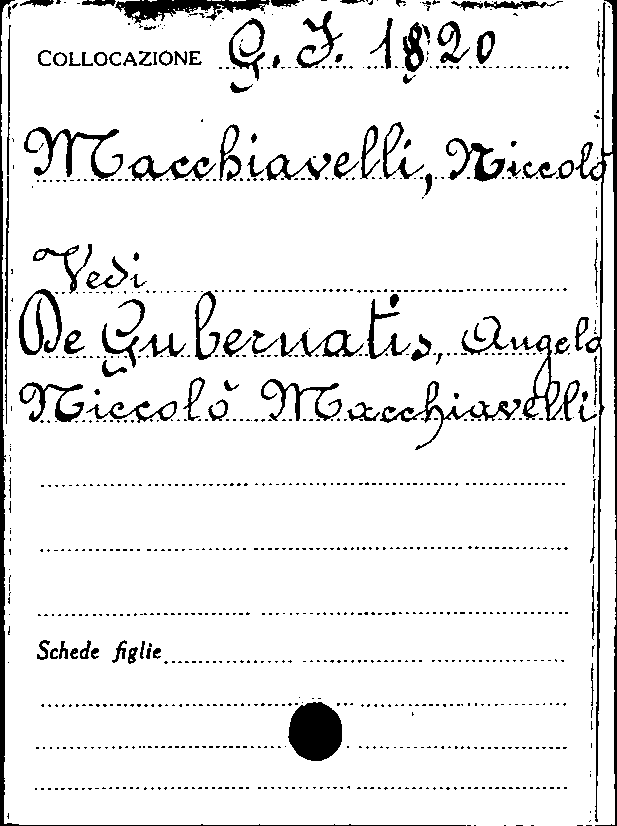 COLLOCAZIONE G. I. 1820
Macchiavelli, Niccolò
Vedi
De Gubernatis, Angelo
Niccolò Macchiavelli
Schede figlie